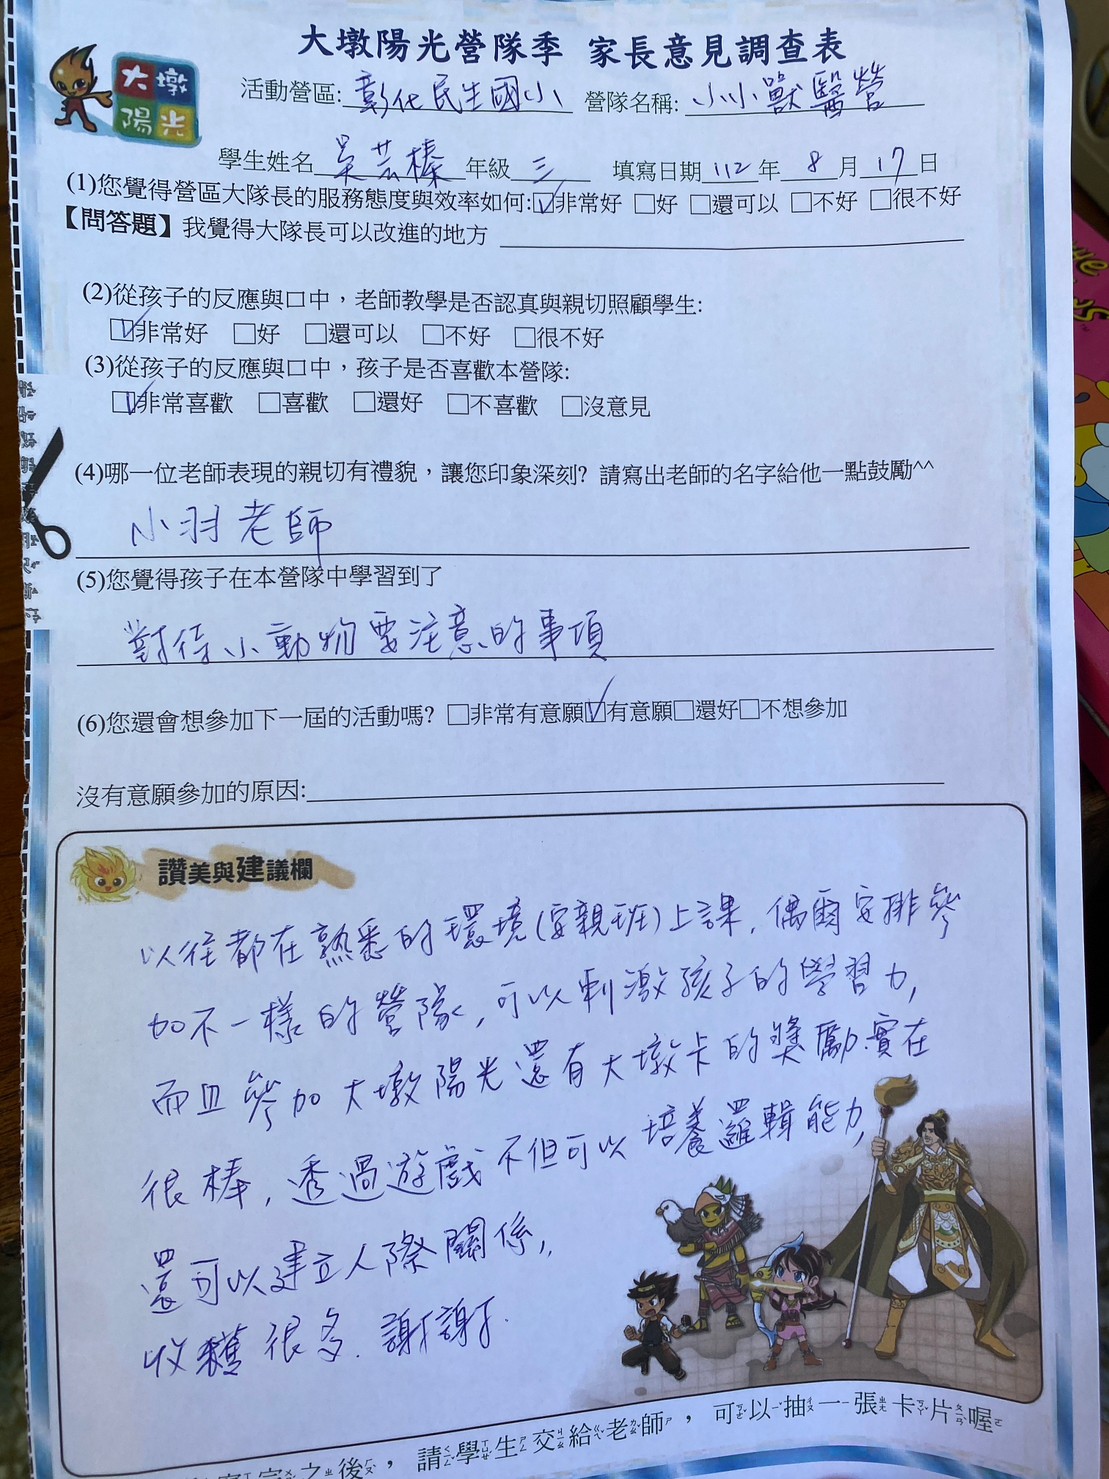 大墩陽光營隊季 家長意見調查表
大墩
陽光
活動營區:彰化民生國小 營隊名稱:小小獸醫營
學生姓名吳芸榛年級三 填寫日期112年8月17日
(1)您覺得營區大隊長的服務態度與效率如何:☑非常好 □好 □還可以 □不好 □很不好
【問答題】我覺得大隊長可以改進的地方
(2)從孩子的反應與口中，老師教學是否認真與親切照顧學生:
☑非常好 □好 □還可以 □不好 □很不好
(3)從孩子的反應與口中，孩子是否喜歡本營隊:
☑非常喜歡 □喜歡 □還好 □不喜歡 □沒意見
(4)哪一位老師表現的親切有禮貌，讓您印象深刻? 請寫出老師的名字給他一點鼓勵^^
小羽老師
(5)您覺得孩子在本營隊中學習到了
對待小動物要注意的事項
(6)您還會想參加下一屆的活動嗎? □非常有意願☑有意願□還好□不想參加
沒有意願參加的原因:
讚美與建議欄
以往都在熟悉的環境(安親班)上課,偶爾安排參
加不一樣的營隊,可以刺激孩子的學習力,
而且參加大墩陽光還有大墩卡的獎勵實在
很棒,透過遊戲不但可以培養邏輯能力,
還可以建立人際關係,,
收穫很多.謝謝.
之後，請學生交給老師，可以抽一張卡片喔